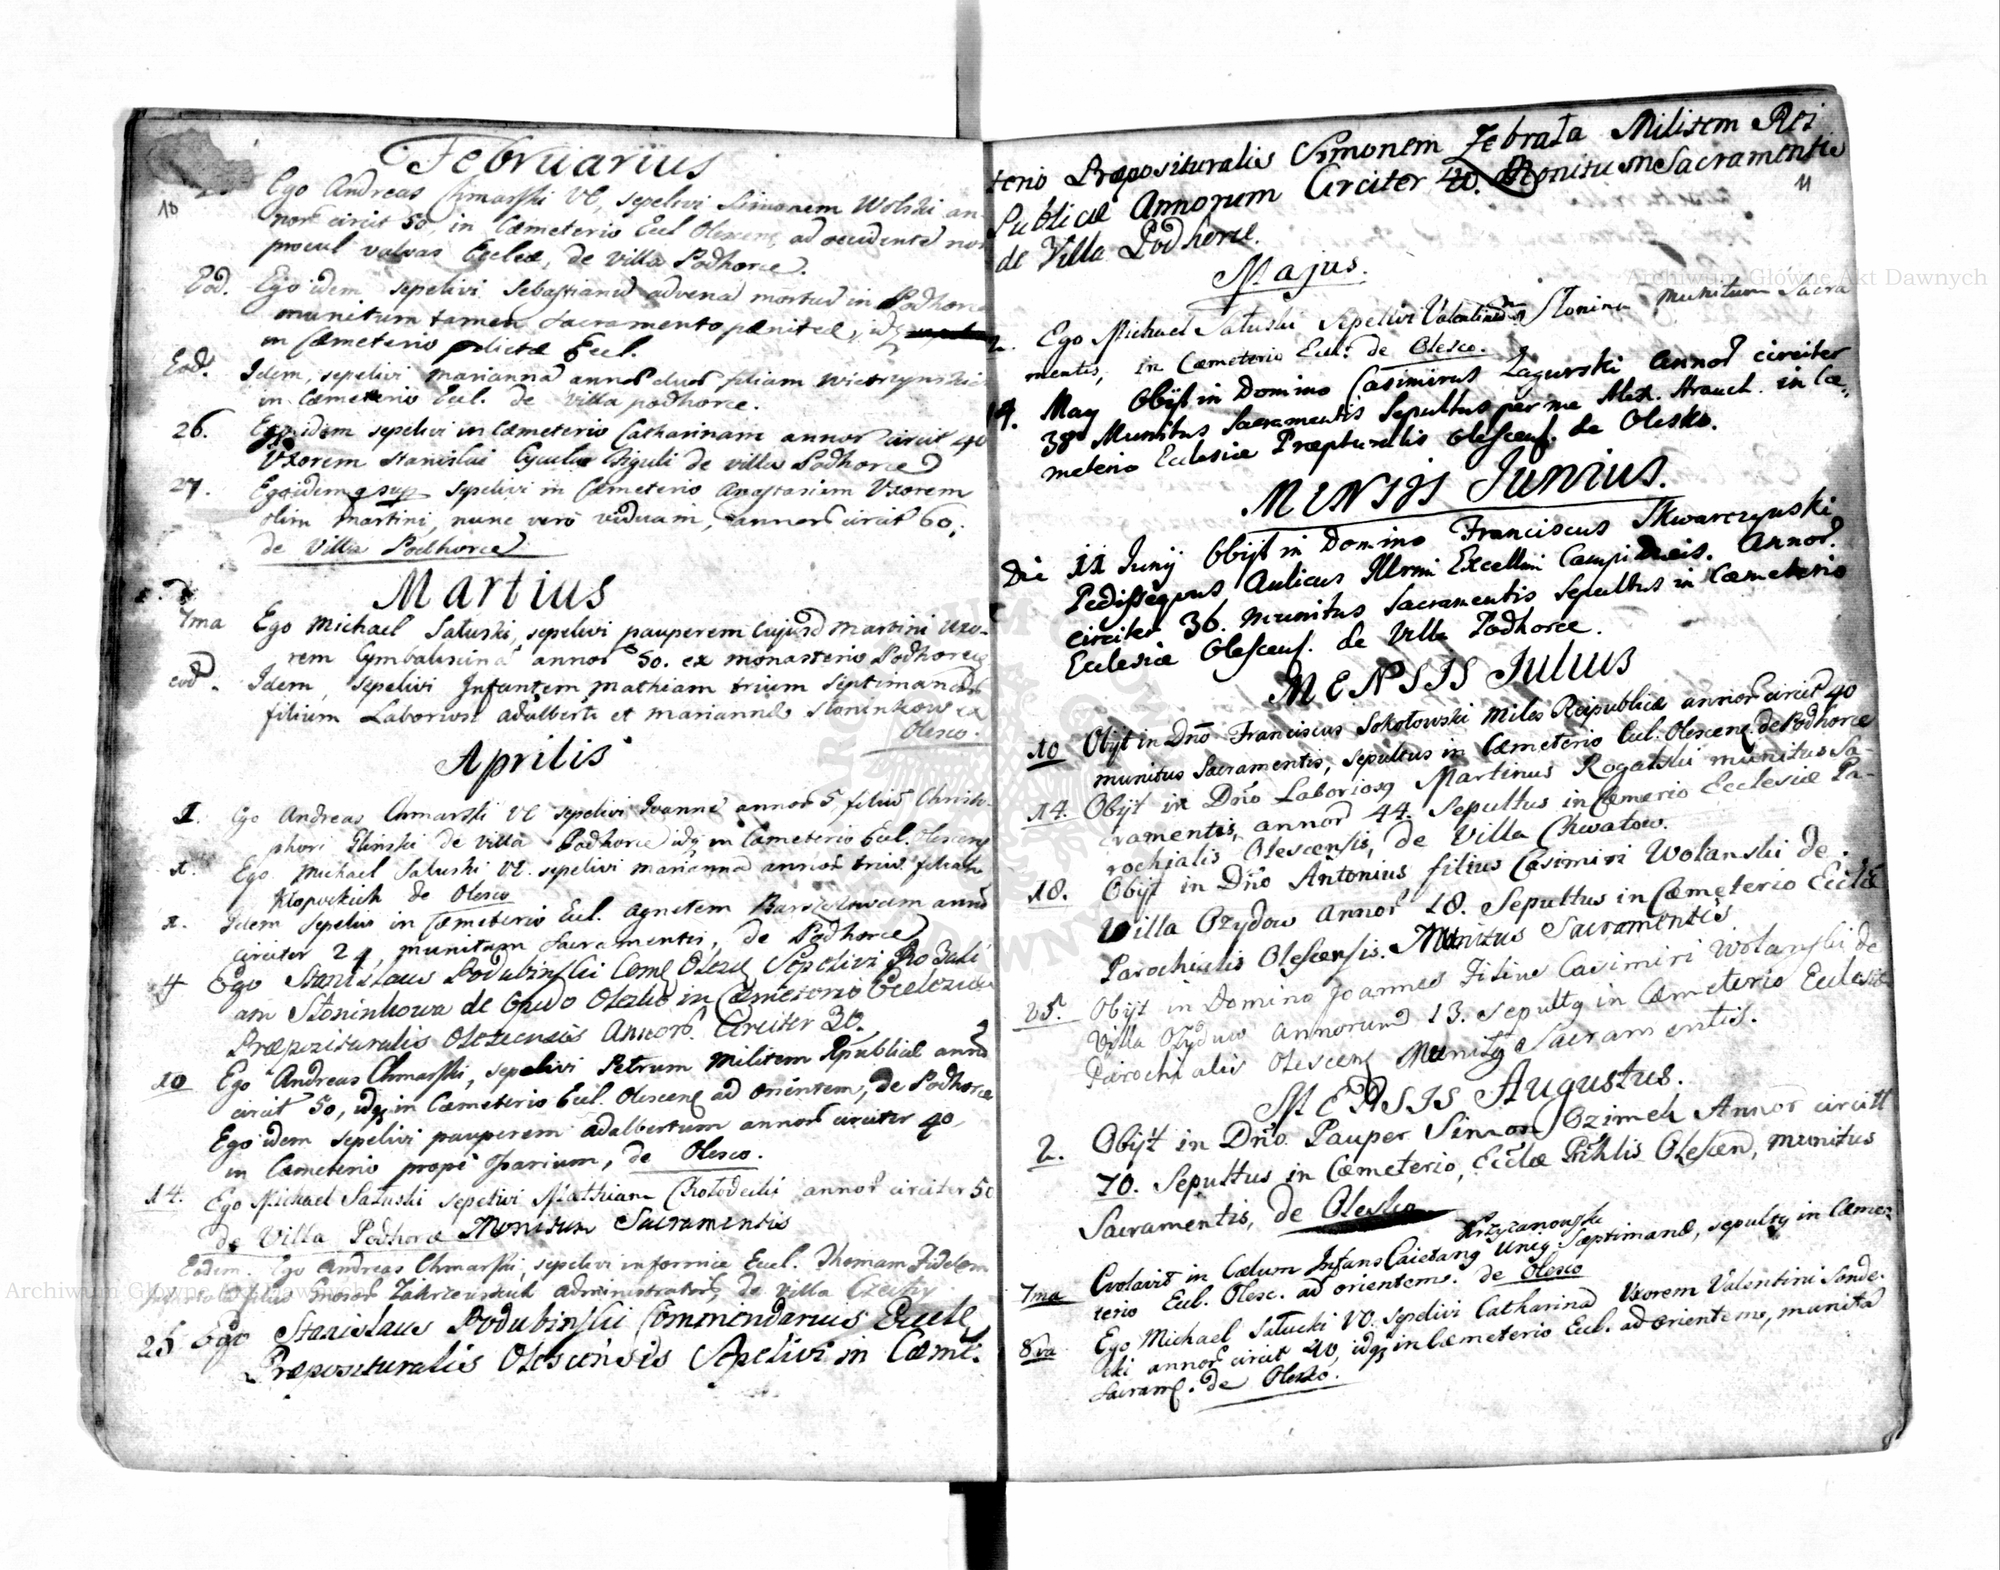 Februarius
10
Ego Andreas Chmarski VC, sepelivi Simonem Wolski an-
nor circit 50, in Cæmeterio Eccl Olescens, ad occidentē non
procul valvas Eccleæ, de villa Podhorce.
Eod. Ego idem sepelivi Sebastianū advenā mortuū in Podhorce
munitum tamen Sacramento pænitæ, idq
in Cæmeterio pdictæ Eccl.
Eod. Idem, sepelivi Mariannā annor duor filiam
in Cæmeterio Eccl. de villa podhorce.
26. Ego idem sepelivi in Cæmeterio Catharinam annor circit 40
Uxorem Stanislai figuli de villa Podhorce
27. Ego idem q sup sepelivi in Cæmeterio Anastasiam Uxorem
olim Martini, nunc verò viduam, annor circit 60,
de Villa Podhorce
Martius
7ma Ego Michael Satuski, sepelivi pauperem cujusd Martini Uxo-
rem Cymbalistinā annor 50. ex monasterio Podhorce
eod. Idem, sepelivi Infantem Mathiam trium septimanar
filium Laborios Adalberti et Mariannæ Stoninkow ex
Olesco.
Aprilis
1. Ego Andreas Chmarski VC sepelivi Ioannē annor 5 filiū Christo-
phori Glinski de villa Podhorce idq in Cæmeterio Eccl. Olescens
1. Ego Michael Satuski VC. sepelivi Mariannā annor triū filiam
Klopockich de Olesco
1. Idem sepelivi in Cæmeterio Eccl. Agnetem annor
circiter 24, munitam Sacramentis, de Podhorce
4 Ego Stanislaus Podubinski Com Olesc Sepelivi Rozali
am Stoninkowa de Opido Olesko in Cæmeterio Ecclesiæ
Præpozituralis Oleszcensis Annor. Circiter 30.
10 Ego Andreas Chmarski, sepelivi Petrum Militem Rpublicæ annor
circit 50, idq in Cæmeterio Eccl. Olescens ad orientem, de Podhorce
Ego idem sepelivi pauperem Adalbertum annor circiter 40,
in Cæmeterio propè Ossarium, de Olesco.
14. Ego Michael Satuski sepelivi Mathiam Chotodecki annor circiter 50
de Villa Podhorce Monitum Sacramentis
Eodem. Ego Andreas Chmarski, sepelivi in fornice Eccl. Thomam Fidelem
filiū Gnosor Zakrzewskich administrator, de villa
25 Ego Stanislaus Podubinski Commendarius Eccle
Præposituralis Olescensis Sepelivi in Cæme-
11
terio Præposituralis Simonem Zebrata Militem Rei
Publicæ Annorum Circiter 40. Monitum Sacramentis
de Villa Podhorce.
Majus.
2. Ego Michael Satuski Sepelivi Valentinum Stonina munitum Sacra
mentis, in Cæmeterio Eccl: de Olesco.
14. May Obijt in Domino Casimirus Zagurski annor circiter
38 Munitus Sacramentis Sepultus per me Alex. Strauch. in Cæ-
meterio Ecclesiæ Præpturalis Olescens. de Olesko.
MENSIS Junius.
Die 11 Junij Obijt in Domino Franciscus Skwarczynski
Pedissequus Aulicus Illrmi Excellmi Campi Ducis. Annor.
circiter 36. munitus Sacramentis Sepultus in Cæmeterio
Ecclesiæ Olescens. de Villa Podhorce.
MENSIS Julius
10 Obijt in Dño Franciscus Sokołowski Miles Reipublicæ annor circit 40
munitus Sacramentis, sepultus in Cæmeterio Eccl. Olescens. de Podhorce
14. Obijt in Dño Laboriosq Martinus Rogalski munitus Sa-
cramentis, annor 44. Sepultus in Cæmerio Ecclesiæ Pa-
rochialis Olescensis, de Villa Chwatow.
18. Obijt in Dño Antonius filius Casimiri Wolanski de
Villa Ozydow Annor 18. Sepultus in Cæmeterio Ecclæ
Parochialis Olescensis. Munitus Sacramentis
25. Obijt in Domino Joannes Filius Casimiri Wolanski de
Villa Ozydow Annorum 13. sepultq in Cæmeterio Ecclesiæ
Parochialis Olescens Munitq Sacramentis.
MENSIS Augustus.
2. Obijt in Dño. Pauper Simon Ozimek Annor circitt
70. Sepultus in Cæmeterio, Ecclæ Prhlis Olescen, munitus
Sacramentis, de Olesko
Krzyzanowski
7ma Evolavit in Cælum Infans Caietanq Uniq Septimanæ, sepultq in Cæme-
terio Eccl. Olesc. ad orientem. de Olesco
8va Ego Michael Satucki VC. Sepelivi Catharinā Uxorem Valentini Sonde-
cki annor circit 40, idq in Cæmeterio Eccl. ad orientem, munitā
Sacram. de Olesko.
Archiwum Główne Akt Dawnych
Archiwum Główne Akt Dawnych